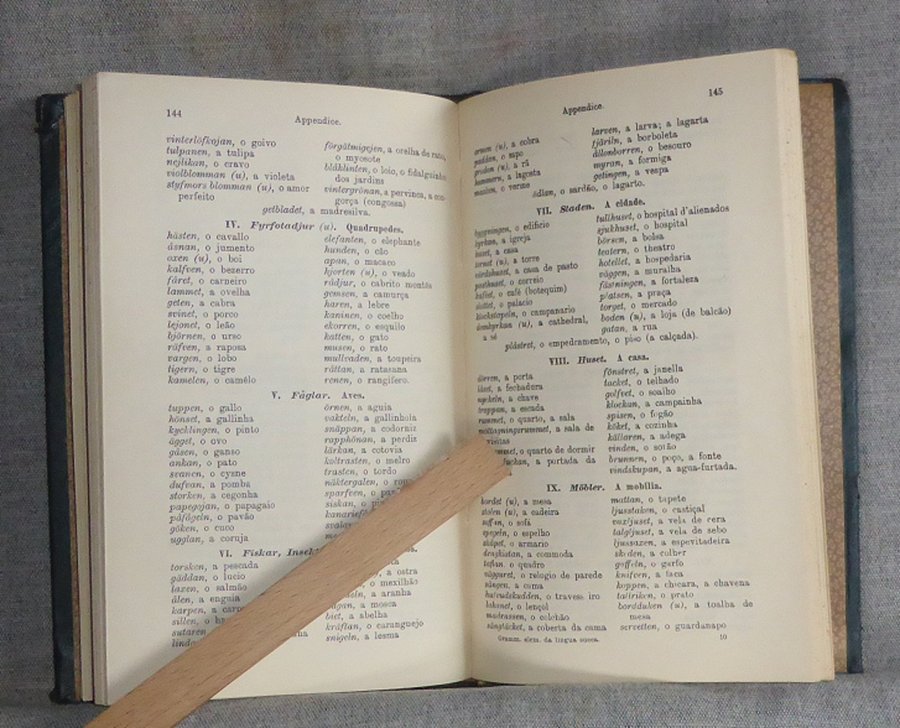 144
Appendice.
vinterlöfkojan, o goivo
tulpanen, a tulipa
nejlikan, o cravo
violblomman (u), a violeta
styfmors blomman (u), o amor
perfeito
förgätmigejen, a orelha de rato,
o myosote
blåklinten, o loio, o fidalguinho
dos jardins
vintergrönan, a pervinca, a con-
gorça (congossa)
getbladet, a madresilva.
IV. Fyrfotadjur (u). Quadrupedes.
hästen, o cavallo
åsnan, o jumento
oxen (u), o boi
kalfven, o bezerro
fåret, o carneiro
lammet, a ovelha
geten, a cabra
svinet, o porco
lejonet, o leão
björnen, o urso
räfven, a raposa
vargen, o lobo
tigern, o tigre
kamelen, o camêlo
elefanten, o elephante
hunden, o cão
apan, o macaco
hjorten (u), o veado
rådjur, o cabrito montês
gemsen, a camurça
haren, a lebre
kaninen, o coelho
ekorren, o esquilo
katten, o gato
musen, o rato
mullvaden, a toupeira
råttan, a ratasana
renen, o rangifero.
V. Fåglar. Aves.
tuppen, o gallo
hönset, a gallinha
kycklingen, o pinto
ägget, o ovo
gåsen, o ganso
ankan, o pato
svanen, o cysne
dufvan, a pomba
storken, a cegonha
papegojan, o papagaio
påfågeln, o pavão
göken, o cuco
ugglan, a coruja
örnen, a aguia
vakteln, a gallinhola
snäppan, a codorniz
rapphönan, a perdiz
lärkan, a cotovia
koltrasten, o melro
trasten, o tordo
näktergalen, o
sparfven, o
siskan, o
VI. Fiskar,
torsken, a pescada
gäddan, o lucio
laxen, o salmão
ålen, a enguia
karpen, a
sillen, o
sutaren
a ostra
o mexilhão
a aranha
a mosca
biet, a abelha
kräftan, o caranguejo
snigeln, a lesma
145
Appendice.
ormen (u), a cobra
paddan, o sapo
grodan (u), a rã
hummern, a lagosta
masken, o verme
larven, a larva; a lagarta
fjäriln, a borboleta
ollonborren, o besouro
myran, a formiga
getingen, a vespa
ödlan, o sardão, o lagarto.
VII. Staden. A cidade.
byggningen, o edificio
kyrkan, a igreja
huset, a casa
tornet (u), a torre
värdshuset, a casa de pasto
posthuset, o correio
kaféet, o café (botequim)
slottet, o palacio
klockstapeln, o campanario
domkyrkan (u), a cathedral,
a sé
tullhuset, o hospital d'alienados
sjukhuset, o hospital
börsen, a bolsa
teatern, o theatro
hotellet, a hospedaria
väggen, a muralha
fästningen, a fortaleza
platsen, a praça
torget, o mercado
boden (u), a loja (de balcão)
gatan, a rua
plåstret, o empedramento, o piso (a calçada).
VIII. Huset. A casa.
dörren, a porta
låset, a fechadura
nyckeln, a chave
trappan, a escada
rummet, o quarto, a sala
mottagningsrummet, a sala de
visitas
o quarto de dormir
a portada da
fönstret, a janella
tacket, o telhado
golfvet, o soalho
klockan, a campainha
spisen, o fogão
köket, a cozinha
källaren, a adega
vinden, o sotão
brunnen, o poço, a fonte
vindskupan, a agua-furtada.
IX. Möbler. A mobilia.
bordet (u), a mesa
stolen (u), a cadeira
soffan, o sofá
spegeln, o espelho
skåpet, o armario
dragkistan, a commoda
taflan, o quadro
vägguret, o relogio de parede
sängen, a cama
hufvudkudden, o travesseiro
lakanet, o lençol
madrassen, o colchão
sängtäcket, a coberta da cama
mattan, o tapete
ljusstaken, o castiçal
vaxljuset, a vela de cera
talgljuset, a vela de sebo
ljussaxen, a espevitadeira
skeden, a colher
gaffeln, o garfo
knifven, a faca
koppen, a chicara, a chavena
tallriken, o prato
bordduken (u), a toalha de
mesa
servetten, o guardanapo
Gramm. elem. da lingua sueca.
10